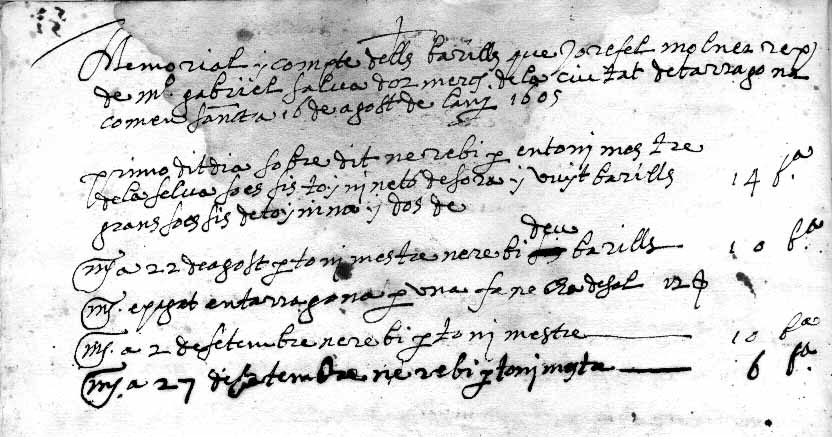 Memorial y compte dells barills que Jo refel molner rep
de mº. gabriel salvador merc. de la ciutat de tarragona
comensant a 16 de agost de lany 1605
primo dit dia sobre dit ne rebi p entoni mestre
de la selva soes sis toyni neto de sora y vuyt barills 14 bª
grans soes sis de toynina y dos de
deu
mº. a 22 de agost p toni mestre ne rebi barills 10 bª
mº. e pagat en tarragona p una fane cha de sal 12 β
mº. a 2 de setembre ne rebi p toni mestre 10 bª
mº. a 27 de setembre ne rebi p toni mestre 6 bª